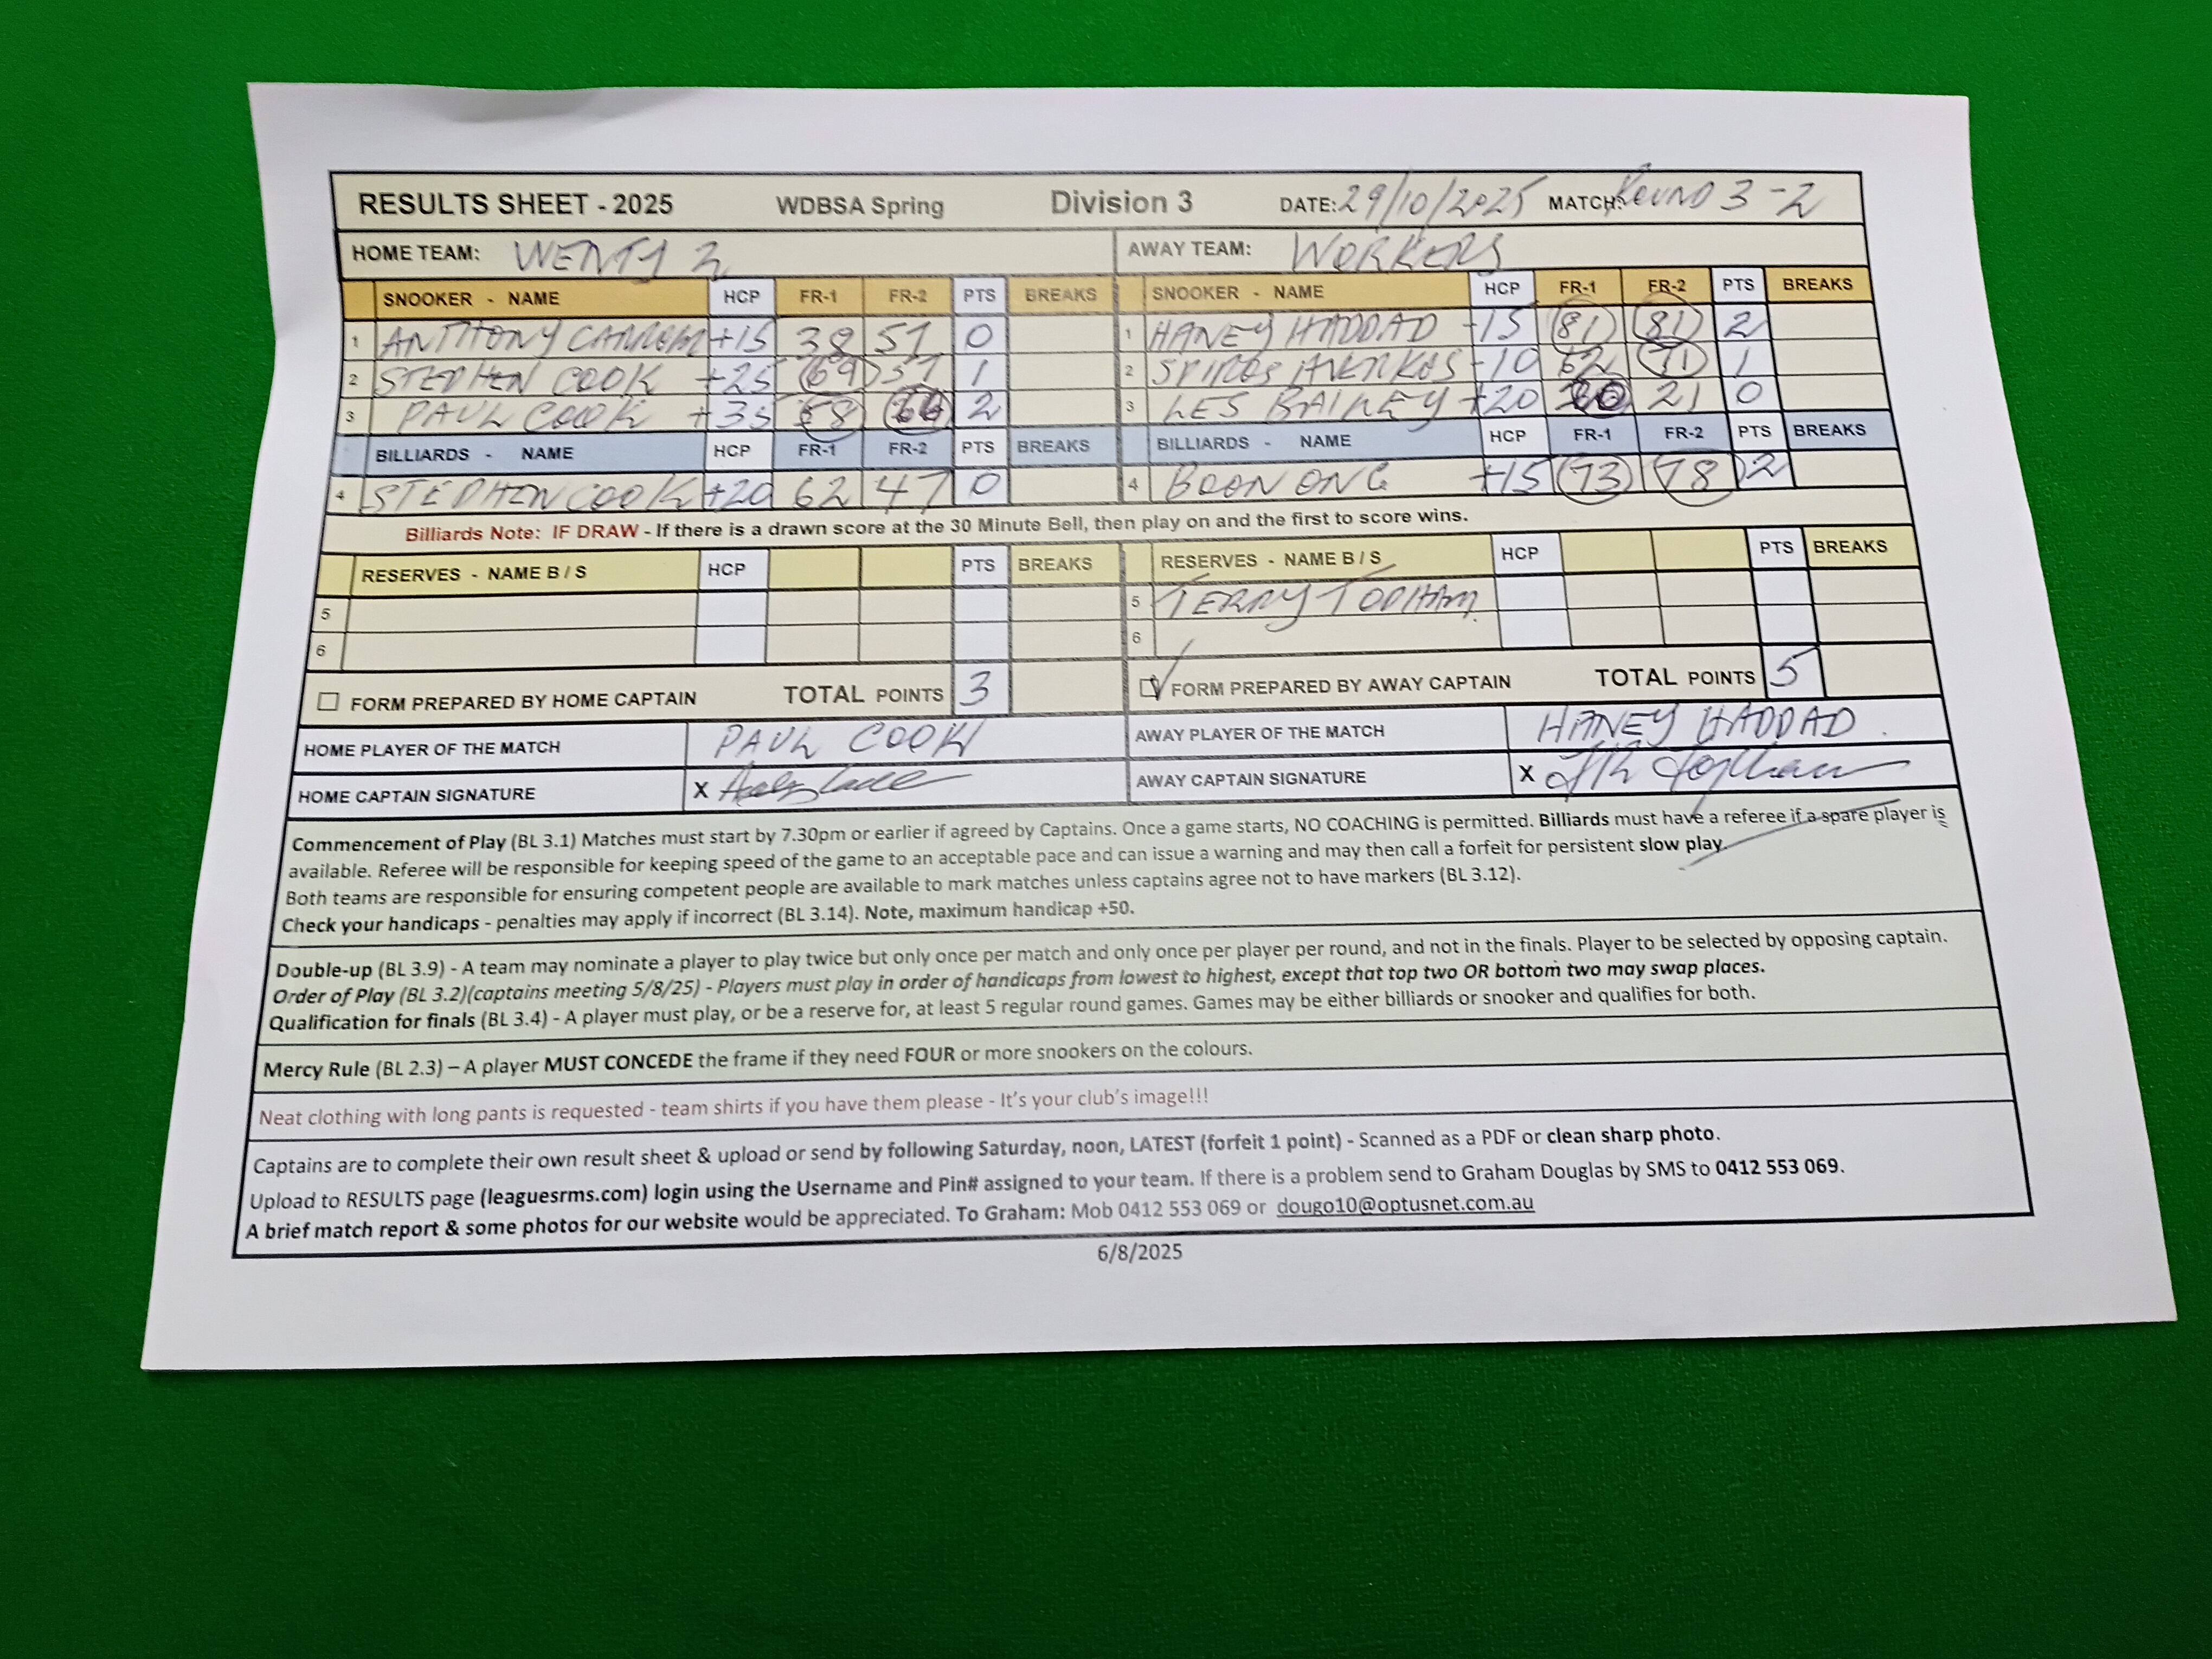 RESULTS SHEET - 2025 WDBSA Spring Division 3 DATE: 29/10/2025 MATCH: ROUND 3-2
HOME TEAM: WENTY 2 AWAY TEAM: WORKERS
SNOOKER - NAME HCP FR-1 FR-2 PTS BREAKS SNOOKER - NAME HCP FR-1 FR-2 PTS BREAKS
1 ANTHONY +15 38 51 0 1 HANEY HADDAD -15 81 81 2
2 STEPHEN COOK +25 69 1 2 SPIROS -10 62 71 1
3 PAUL COOK +35 58 2 3 LES BAILEY +20 21 0
BILLIARDS - NAME HCP FR-1 FR-2 PTS BREAKS BILLIARDS - NAME HCP FR-1 FR-2 PTS BREAKS
4 STEPHEN COOK +20 62 47 0 4 BOON ONG +15 73 78 2
Billiards Note: IF DRAW - If there is a drawn score at the 30 Minute Bell, then play on and the first to score wins.
RESERVES - NAME B / S HCP PTS BREAKS RESERVES - NAME B / S HCP PTS BREAKS
5 5 TERRY TOPHAM
6 6
FORM PREPARED BY HOME CAPTAIN TOTAL POINTS 3 FORM PREPARED BY AWAY CAPTAIN TOTAL POINTS 5
HOME PLAYER OF THE MATCH PAUL COOK AWAY PLAYER OF THE MATCH HANEY HADDAD
HOME CAPTAIN SIGNATURE X AWAY CAPTAIN SIGNATURE X
Commencement of Play (BL 3.1) Matches must start by 7.30pm or earlier if agreed by Captains. Once a game starts, NO COACHING is permitted. Billiards must have a referee if a spare player is
available. Referee will be responsible for keeping speed of the game to an acceptable pace and can issue a warning and may then call a forfeit for persistent slow play.
Both teams are responsible for ensuring competent people are available to mark matches unless captains agree not to have markers (BL 3.12).
Check your handicaps - penalties may apply if incorrect (BL 3.14). Note, maximum handicap +50.
Double-up (BL 3.9) - A team may nominate a player to play twice but only once per match and only once per player per round, and not in the finals. Player to be selected by opposing captain.
Order of Play (BL 3.2)(captains meeting 5/8/25) - Players must play in order of handicaps from lowest to highest, except that top two OR bottom two may swap places.
Qualification for finals (BL 3.4) - A player must play, or be a reserve for, at least 5 regular round games. Games may be either billiards or snooker and qualifies for both.
Mercy Rule (BL 2.3) – A player MUST CONCEDE the frame if they need FOUR or more snookers on the colours.
Neat clothing with long pants is requested - team shirts if you have them please - It's your club's image!!!
Captains are to complete their own result sheet & upload or send by following Saturday, noon, LATEST (forfeit 1 point) - Scanned as a PDF or clean sharp photo.
Upload to RESULTS page (leaguesrms.com) login using the Username and Pin# assigned to your team. If there is a problem send to Graham Douglas by SMS to 0412 553 069.
A brief match report & some photos for our website would be appreciated. To Graham: Mob 0412 553 069 or dougo10@optusnet.com.au
6/8/2025